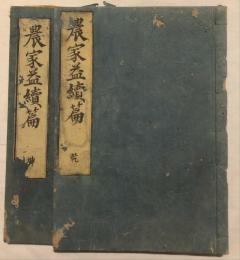 農家益續篇 乾
農家益續篇 坤